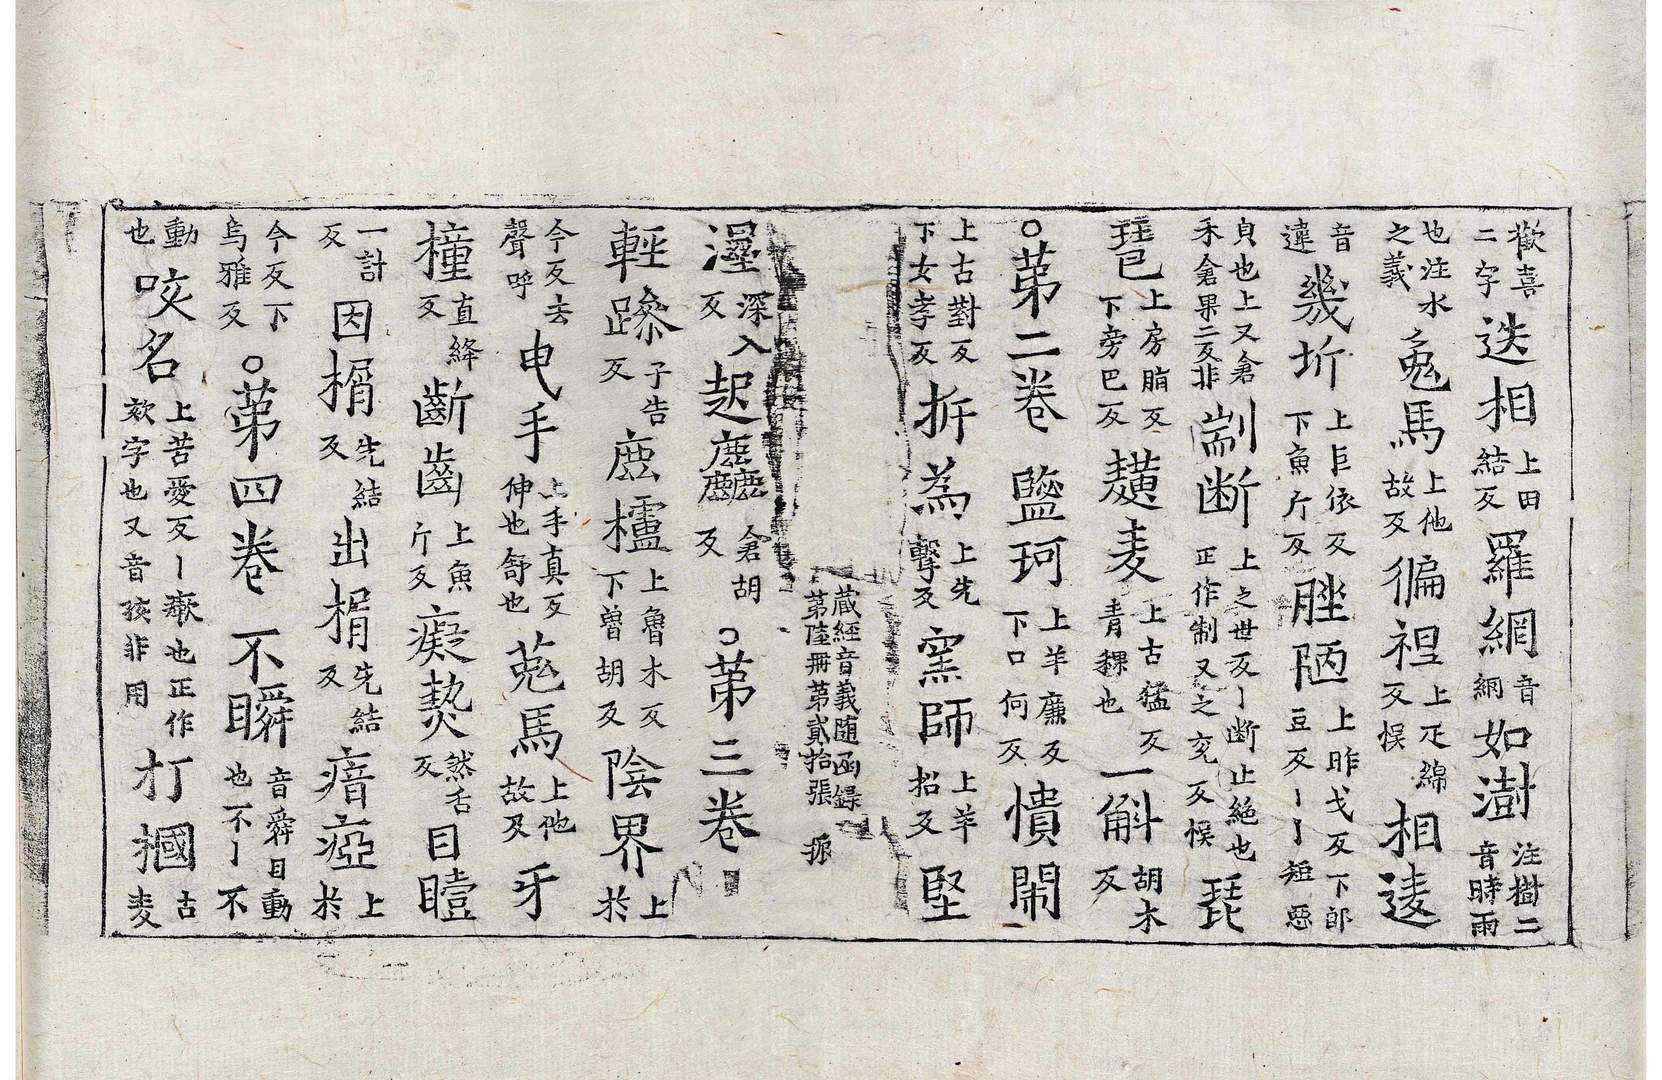 歡喜二字迭相上田結反羅網音網如澍注樹二音時雨
也注水之義兔馬上他故反徧裎上疋綿反悮相逺
音違幾圻上巨依反下魚斤反脞陋上昨戈反下郎豆反丨丨短惡
貞也上又倉禾倉果二反非剬断上之世反丨断止絶也正作制又之兖反悮琵
琶上房脂反下旁巴反䵃麦上古猛反青稞也一斛胡木反
○第二卷鹽珂上羊廉反下口何反憒閙
上古對反下女孝反折為上先擊反窯師上羊招反堅
藏經音義随函録第陸冊第貳拾張 振
濕深入反起麤倉胡反○第三卷
輕躁子告反鹿櫨上魯木反下曽胡反陰界上於
今反去聲呼申手上手真反伸也舒也兔馬上他故反牙
橦直絳反齗齒上魚斤反癡𤍠然舌反目瞪
一計反因楔先結反出楔先結反瘖瘂上於
今反下烏雅反○第四卷不瞬音舜目動也不丨不
動也咳名上苦愛反丨瘶也正作欬字也又音孩非用打摑古麦